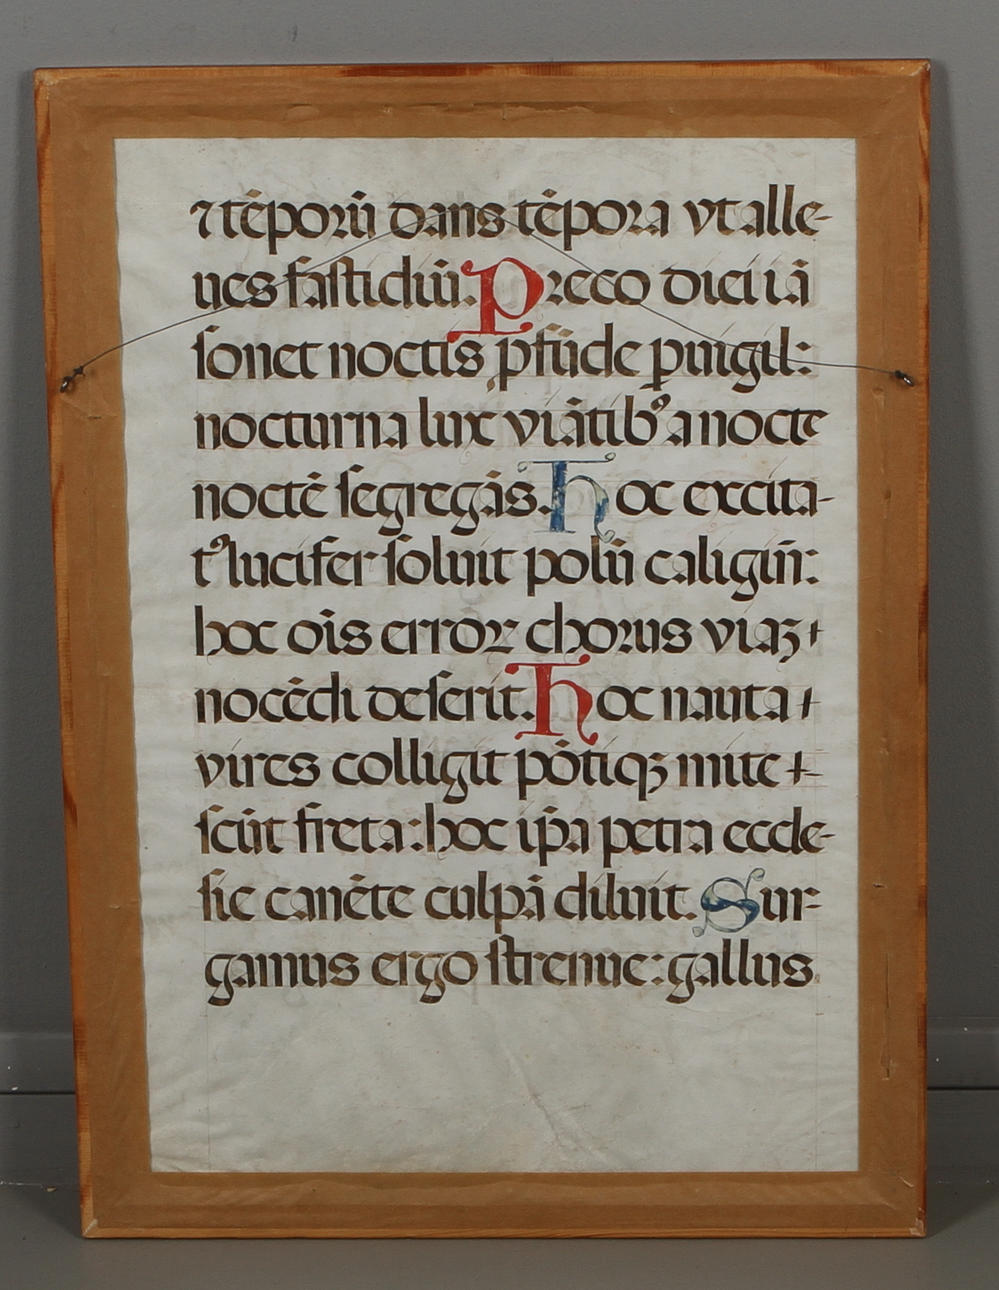 ⁊ tēporū dans tēpora vt alle-
ues fastidiū. Preco diei iā
sonat noctis ꝓfūde ꝑuigil:
nocturna lux viātibꝰ a nocte
noctē segregās. Hoc excita-
tꝰ lucifer soluit polū caligin̄:
hoc oīs error chorus viaꝝ
nocēdi deserit. Hoc nauta
vires colligit pōtiqꝫ mite-
scūt freta: hoc ip̄a petra eccle-
sie canēte culpā diluit. Sur-
gamus ergo strenue: gallus